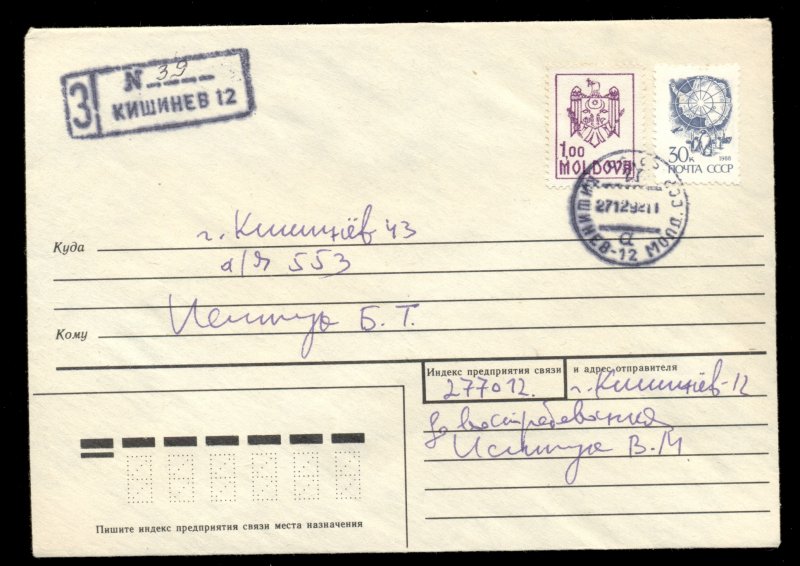 З N 39
КИШИНЕВ 12
1,00
MOLDOVA
30 к
1988
ПОЧТА СССР
271292 11
КИШИНЕВ-12 МОЛД. ССР
а
Куда г. Кишинёв 43
а/я 553
Кому Б. Т.
Индекс предприятия связи и адрес отправителя
277012 г. Кишинёв-12
до востребования
В. М.
Пишите индекс предприятия связи места назначения